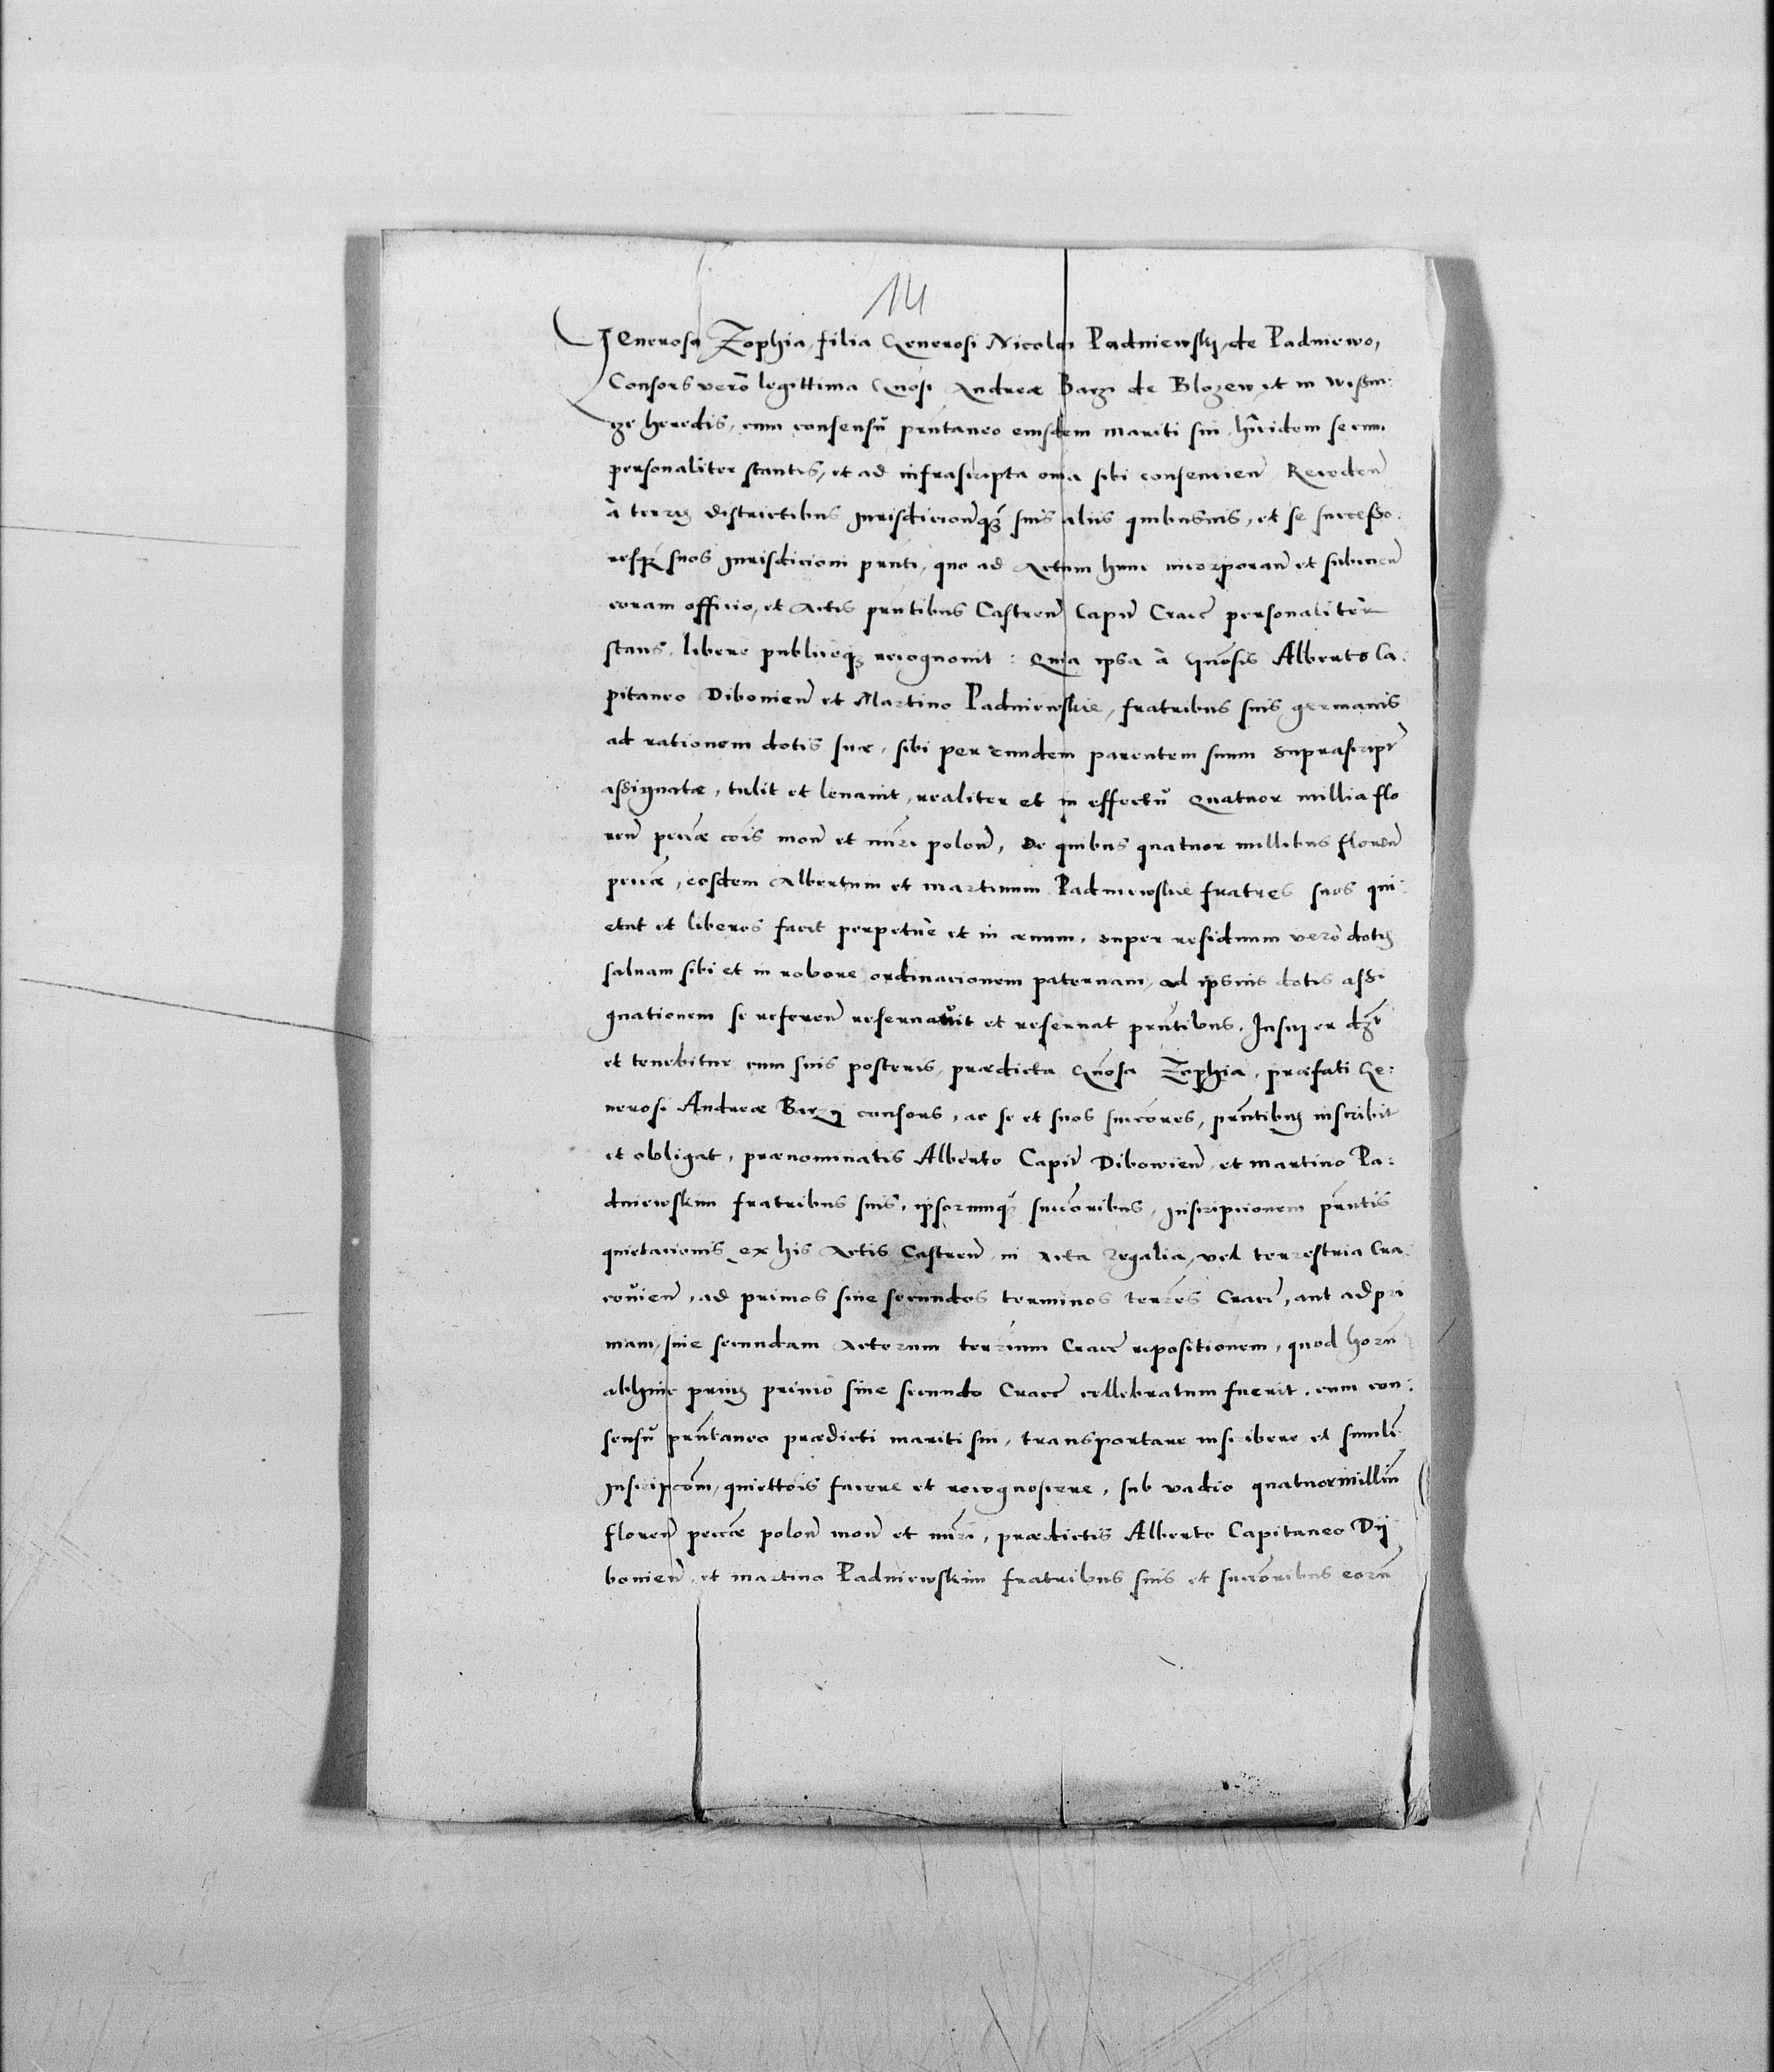 14
Generosa Zophia, filia Generosi Nicolai Padniewskj, de Padniewo,
Consors vero legittima Gnosi Andreæ Barzi de Blozew, et in Wissni:
ze heredis, cum consensu pñtaneo eiusdem mariti sui, hîcidem secum
personaliter stantis, et ad infrascripta oñia sibi consencieñ Receden̄
à terris districtibus Jurisdicionq3 suis aliis quibusuis, et se successo:
resq3 suos Jurisdicioni pñti, quo ad Actum hunc incorporan̄ et subiicien̄
coram officio, et Actis pñtibus Castren̄ Capiñ Cracc̄ personaliter
stans, libere publiceq3 recognouit: Quia ipsa à Gnosis Alberto Ca:
pitaneo Dibouien̄ et Martino Padniewskie, fratribus suis germanis
ad rationem dotis suæ, sibi per eundem parentem suum suprascript̄
assignatæ, tulit et leuauit, realiter et in effectu Quatuor millia flo
ren̄ peciæ cōis moñ et nūri poloñ, De quibus quatuor millibus floren̄
peciæ, eosdem Albertum et martinum Padniewskie fratres suos qui:
etat et liberos facit perpetuè et in æuum. super residuum verò dotis
saluam sibi et in robore ordinacionem paternam, ad ipsius dotis assi
gnationem se referen̄ reseruauit et reseruat pñtibus. Insuper dz̄t
et tenebitur cum suis posteris, prædicta Gnosa Zophia, præfati Ge:
nerosi Andreæ Barzj consors, ac se et suos succōres, pñtibus inscribit
et obligat, prænominatis Alberto Capiñ Dibowien̄, et martino Pa:
dniewskim fratribus suis, ipsorumq3 succōribus, inscripcionem pñtis
quietacionis ex his Actis Castren̄ in Acta Regalia, vel terrestria Cra
couien̄, ad primos siue secundos terminos terrēs Cracc̄, aut ad pri
mam, siue secundam Actorum terrium Cracc̄ repositionem, quod horū
abhinc prius primo siue secundo Cracc̄ cellebratum fuerit, cum con:
sensu pñtaneo prædicti mariti sui, transportare inscribere et similē
Inscripcōm, quiettōis facere et recognoscere, sub vadio quatuormilliū
floren̄ peciæ poloñ moñ et nūri, prædictis Alberto Capitaneo Dij
bouien̄, et martino Padniewskim fratribus suis et succōribus eorū